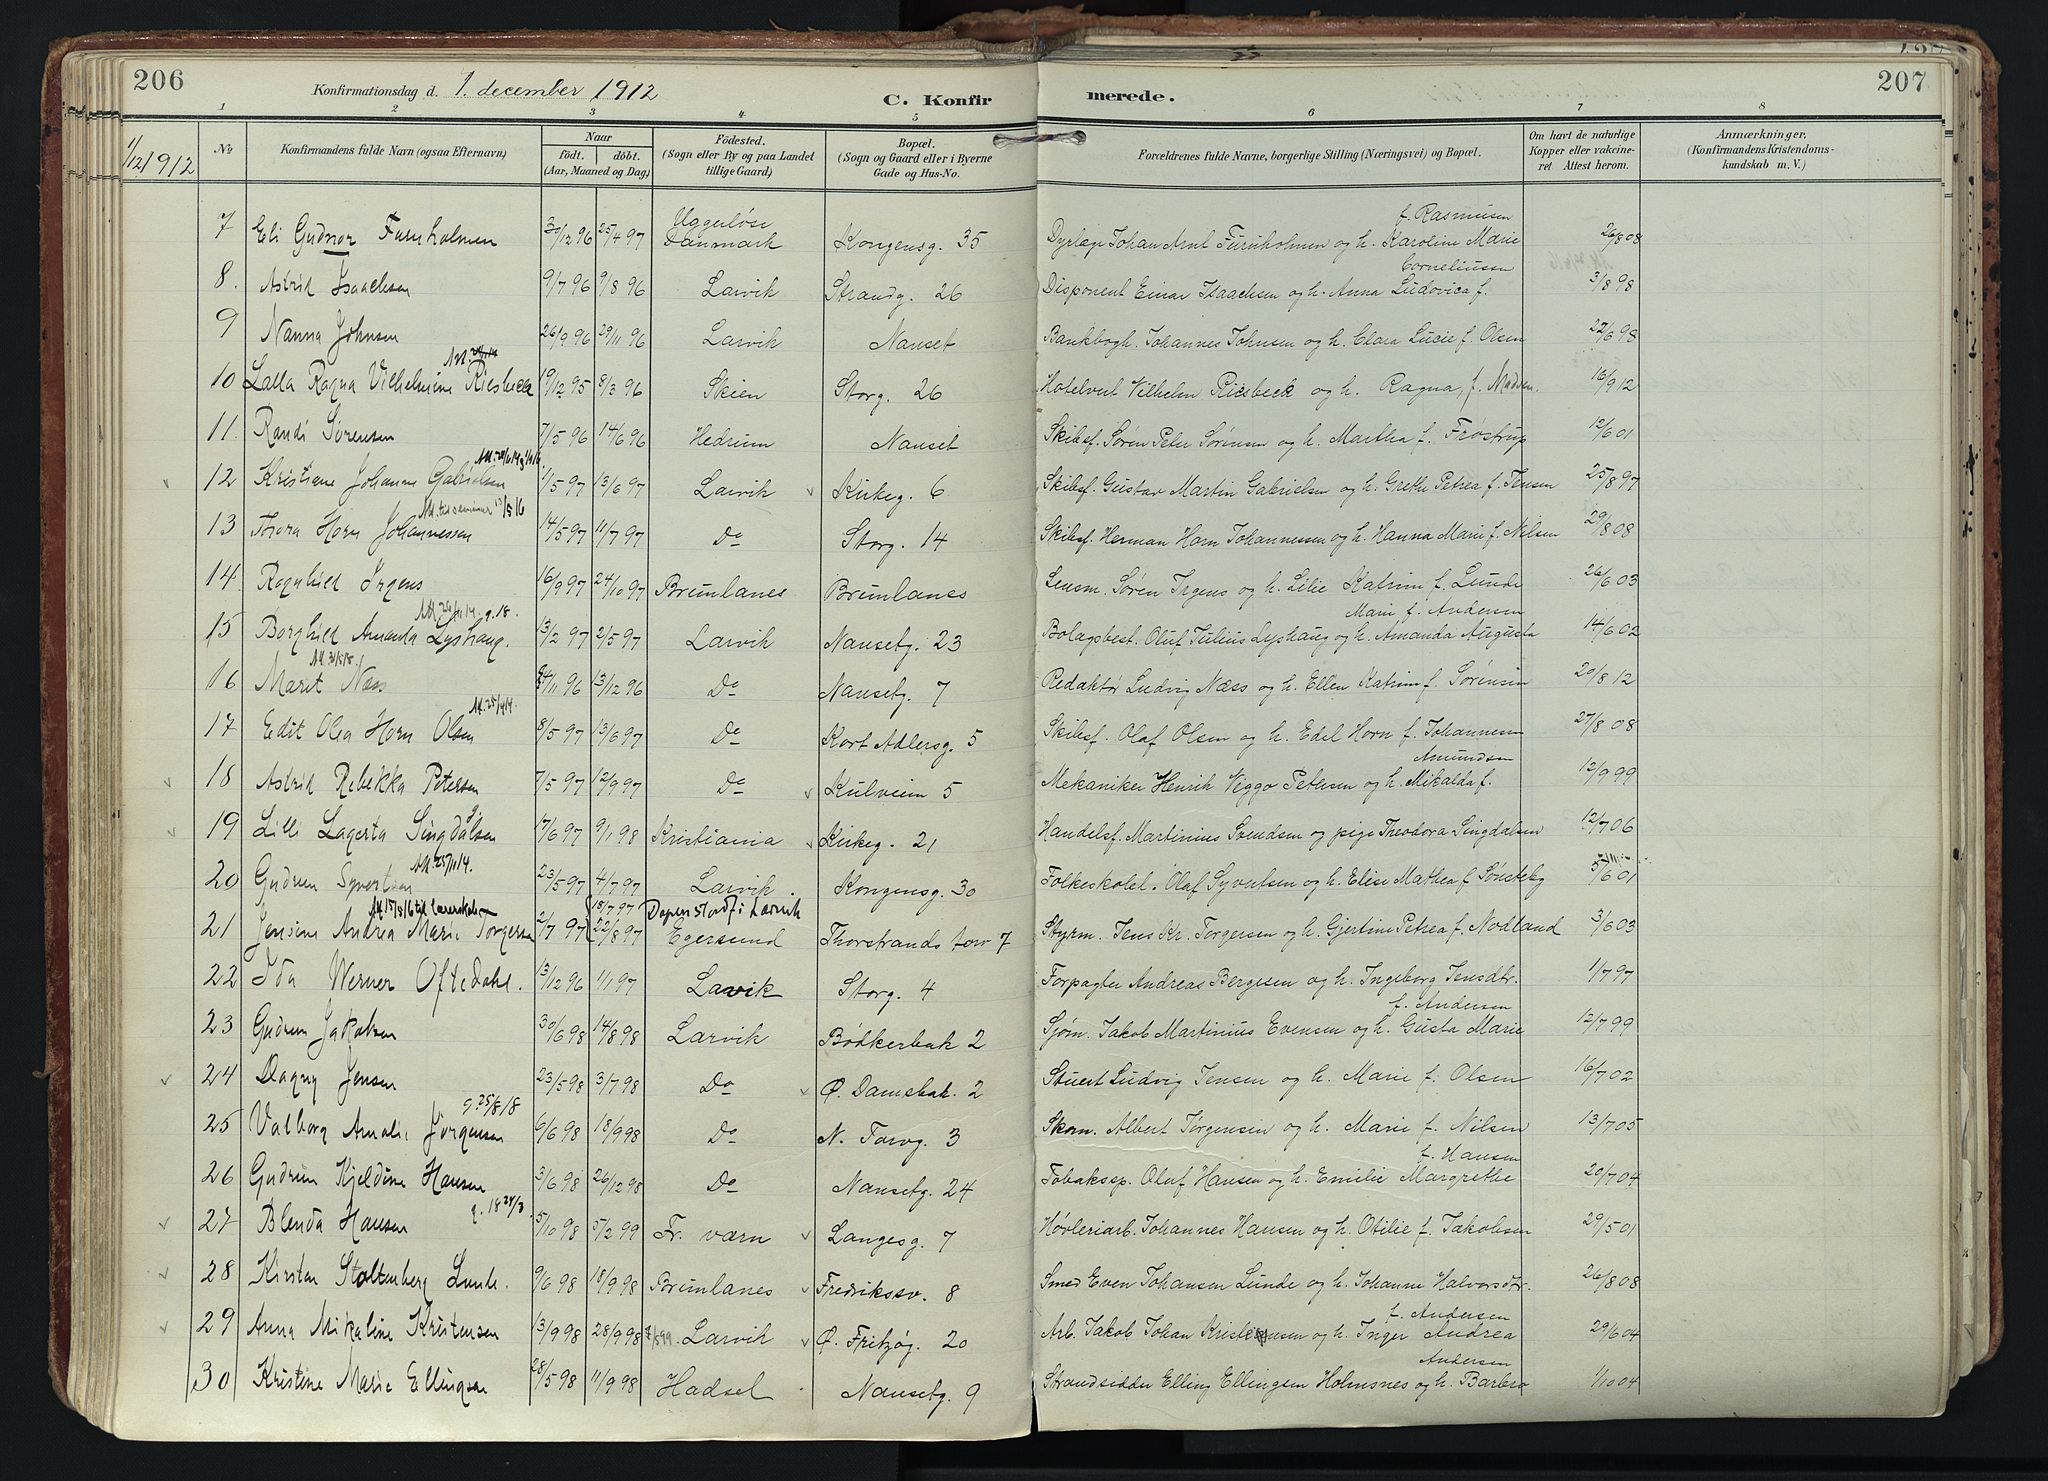 206
Konfirmationsdag d. 1. december 1912
C. Konfirmerede.
207
1/12 1912
1 2 3 4 5 6 7 8
No
Konfirmandens fulde Navn (ogsaa Efternavn)
Naar
født. døbt.
(Aar, Maaned og Dag)
Födested.
(Sogn eller By og paa Landet tillige Gaard)
Bopæl.
(Sogn og Gaard eller i Byerne Gade og Hus-No.
Forældrenes fulde Navne, borgerlige Stilling (Næringsvei) og Bopæl.
Om havt de naturlige Kopper eller vakcineret Attest herom.
Anmærkninger.
(Konfirmandens Kristendomskundskab m. V.)
7 Eli Gudnor Furuholmen 30/12 96 25/4 97 Uggerløse Danmark Kongensg. 35 Dyrlæge Johan Arnt Furuholmen og h. Karoline Marie f. Rasmusen 26/8 08
8. Astrid Isaachsen 9/7 96 9/8 96 Larvik Strandg. 26 Disponent Einar Isaachsen og h. Anna Ludovica f. Corneliussen 3/8 98
9 Nanna Johnsen 26/9 96 29/11 96 Larvik Nanset Bankbogh. Johannes Johnsen og h. Clara Lucie f. Olsen 27/6 98
10 Lalla Ragna Vilhelmine Riesbeck 19/12 95 8/3 96 Skien Storg. 26 Hotelvert Vilhelm Riesbeck og h. Ragna, f. Madsen. 16/9 12
11. Randi Sørensen 7/5 96 14/6 96 Hedrum Nanset Skibsf. Søren Peter Sørensen og h. Martha f. Frøstrup 12/6 01
12 Kristiane Johanne Gabrielsen 1/5 97 13/6 97 Larvik Kirkeg. 6 Skibsf. Gustav Martin Gabrielsen og h. Grethe Petrea f. Jensen 25/8 97
13 Thora Horn Johannessen Att. til seminar 13/5 16 14/5 97 11/7 97 Do Storg. 14 Skibsf. Herman Horn Johannessen og h. Hanna Marie f. Nilsen 29/8 08
14. Ragnhild Irgens 16/9 97 24/10 97 Brunlanes Brunlanes Lensm. Søren Irgens og h. Lilie Katrine f. Lunde 26/6 03
15 Borghild Amanda Lyshaug. g. 18. 13/2 97 2/5 97 Larvik Nansetg. 23 Bolagsbest. Oluf Julius Lyshaug og h. Amanda Augusta Marie f. Andersen 14/6 02
16 Marit Næss 24/11 96 13/12 96 Do Nansetg. 7 Redaktør Ludvig Næss og h. Ellen Katrine f. Sørensen 20/8 12
17 Edit Olea Horn Olsen 8/5 97 13/6 97 Do Kort Adlersg. 5 Skibsf. Olaf Olsen og h. Edel Horn f. Johannesen 27/8 08
18 Astrid Rebekka Petersen 7/5 97 12/9 97 Do Kulveien 5 Mekaniker Henrik Viggo Petersen og h. Mikalda f. Amundsen 12/9 99
19 Lilli Lagerta Singdalsen 17/6 97 9/1 98 Kristiania Kirkeg. 21 Handelsf. Martinius Svendsen og pige Theodora Singdalsen 12/7 06
20 Gudrun Syvertsen Att. 25/11 14. 23/5 97 4/7 97 Larvik. Kongensg. 30 Folkeskolel. Olaf Syvertsen og h. Elise Mathea f. Sønsteby 5/6 01
21 Jensine Andrea Marie Torgersen Att. 15/8 16 til lærerskolen 2/7 97 18/7 97 22/8 97 Daapen stadf. i Larvik Egersund Thorstrands torv 7 Styrm. Jens Kr. Torgersen og h. Gjertine Petrea f. Nodland 3/6 03
22 Ida Werner Oftedahl. 13/12 96 1/1 97 Larvik Storg. 4 Forpagter Andreas Bergesen og h. Ingeborg Jensdtr. 1/7 97
23 Gudrun Jakobsen 30/6 98 14/8 98 Larvik Bødkerbak 2 Sjøm. Jakob Martinius Evensen og h. Gusta Marie f. Andersen 12/7 99
24 Dagny Jensen 23/5 98 3/7 98 Do Ø. Damebak. 2 Stuert Ludvig Jensen og h. Marie f. Olsen 16/7 02
25 Valborg Amalie Jørgensen g. 25/8 18 6/6 98 18/9 98 Do N. Torvg. 3 Skom. Albert Jørgensen og h. Marie f. Nilsen 13/7 05
26 Gudrun Kjeldine Hansen 3/6 98 26/12 98 Do Nansetg. 24 Tobakssp. Oluf Hansen og h. Emilie Margrethe f. Hansen 20/7 04
27 Blenda Hansen 5/10 98 5/2 99 Fr. værn Langesg. 7 Høvleriarb. Johannes Hansen og h. Otilie f. Jakobsen 29/5 01
28 Kirsten Stoltenberg Lunde. 9/6 98 18/9 98 Brunlanes Fredrikssv. 8 Smed Even Johansen Lunde og h. Johanne Halvorsdtr. 26/8 08
29 Anna Mikaline Kristensen 13/9 98 28/9 98 Larvik Ø. Fritzøg. 20 Arb. Jakob Johan Kristensen og h. Inger Andrea f. Andersen 29/6 04
30 Kristine Marie Ellingsen 28/5 98 11/9 98 Hadsel Nansetg. 9 Strandsidder Elling Ellingsen Holmsnes og h. Barbro Andersen 1/10 04